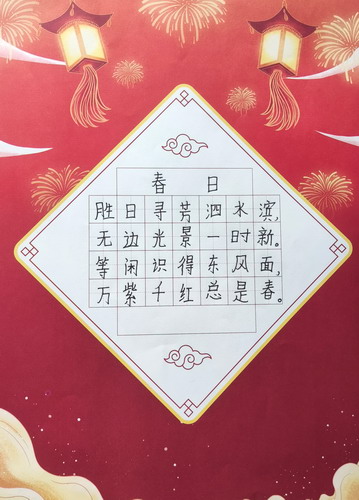 春日
胜日寻芳泗水滨，
无边光景一时新。
等闲识得东风面，
万紫千红总是春。